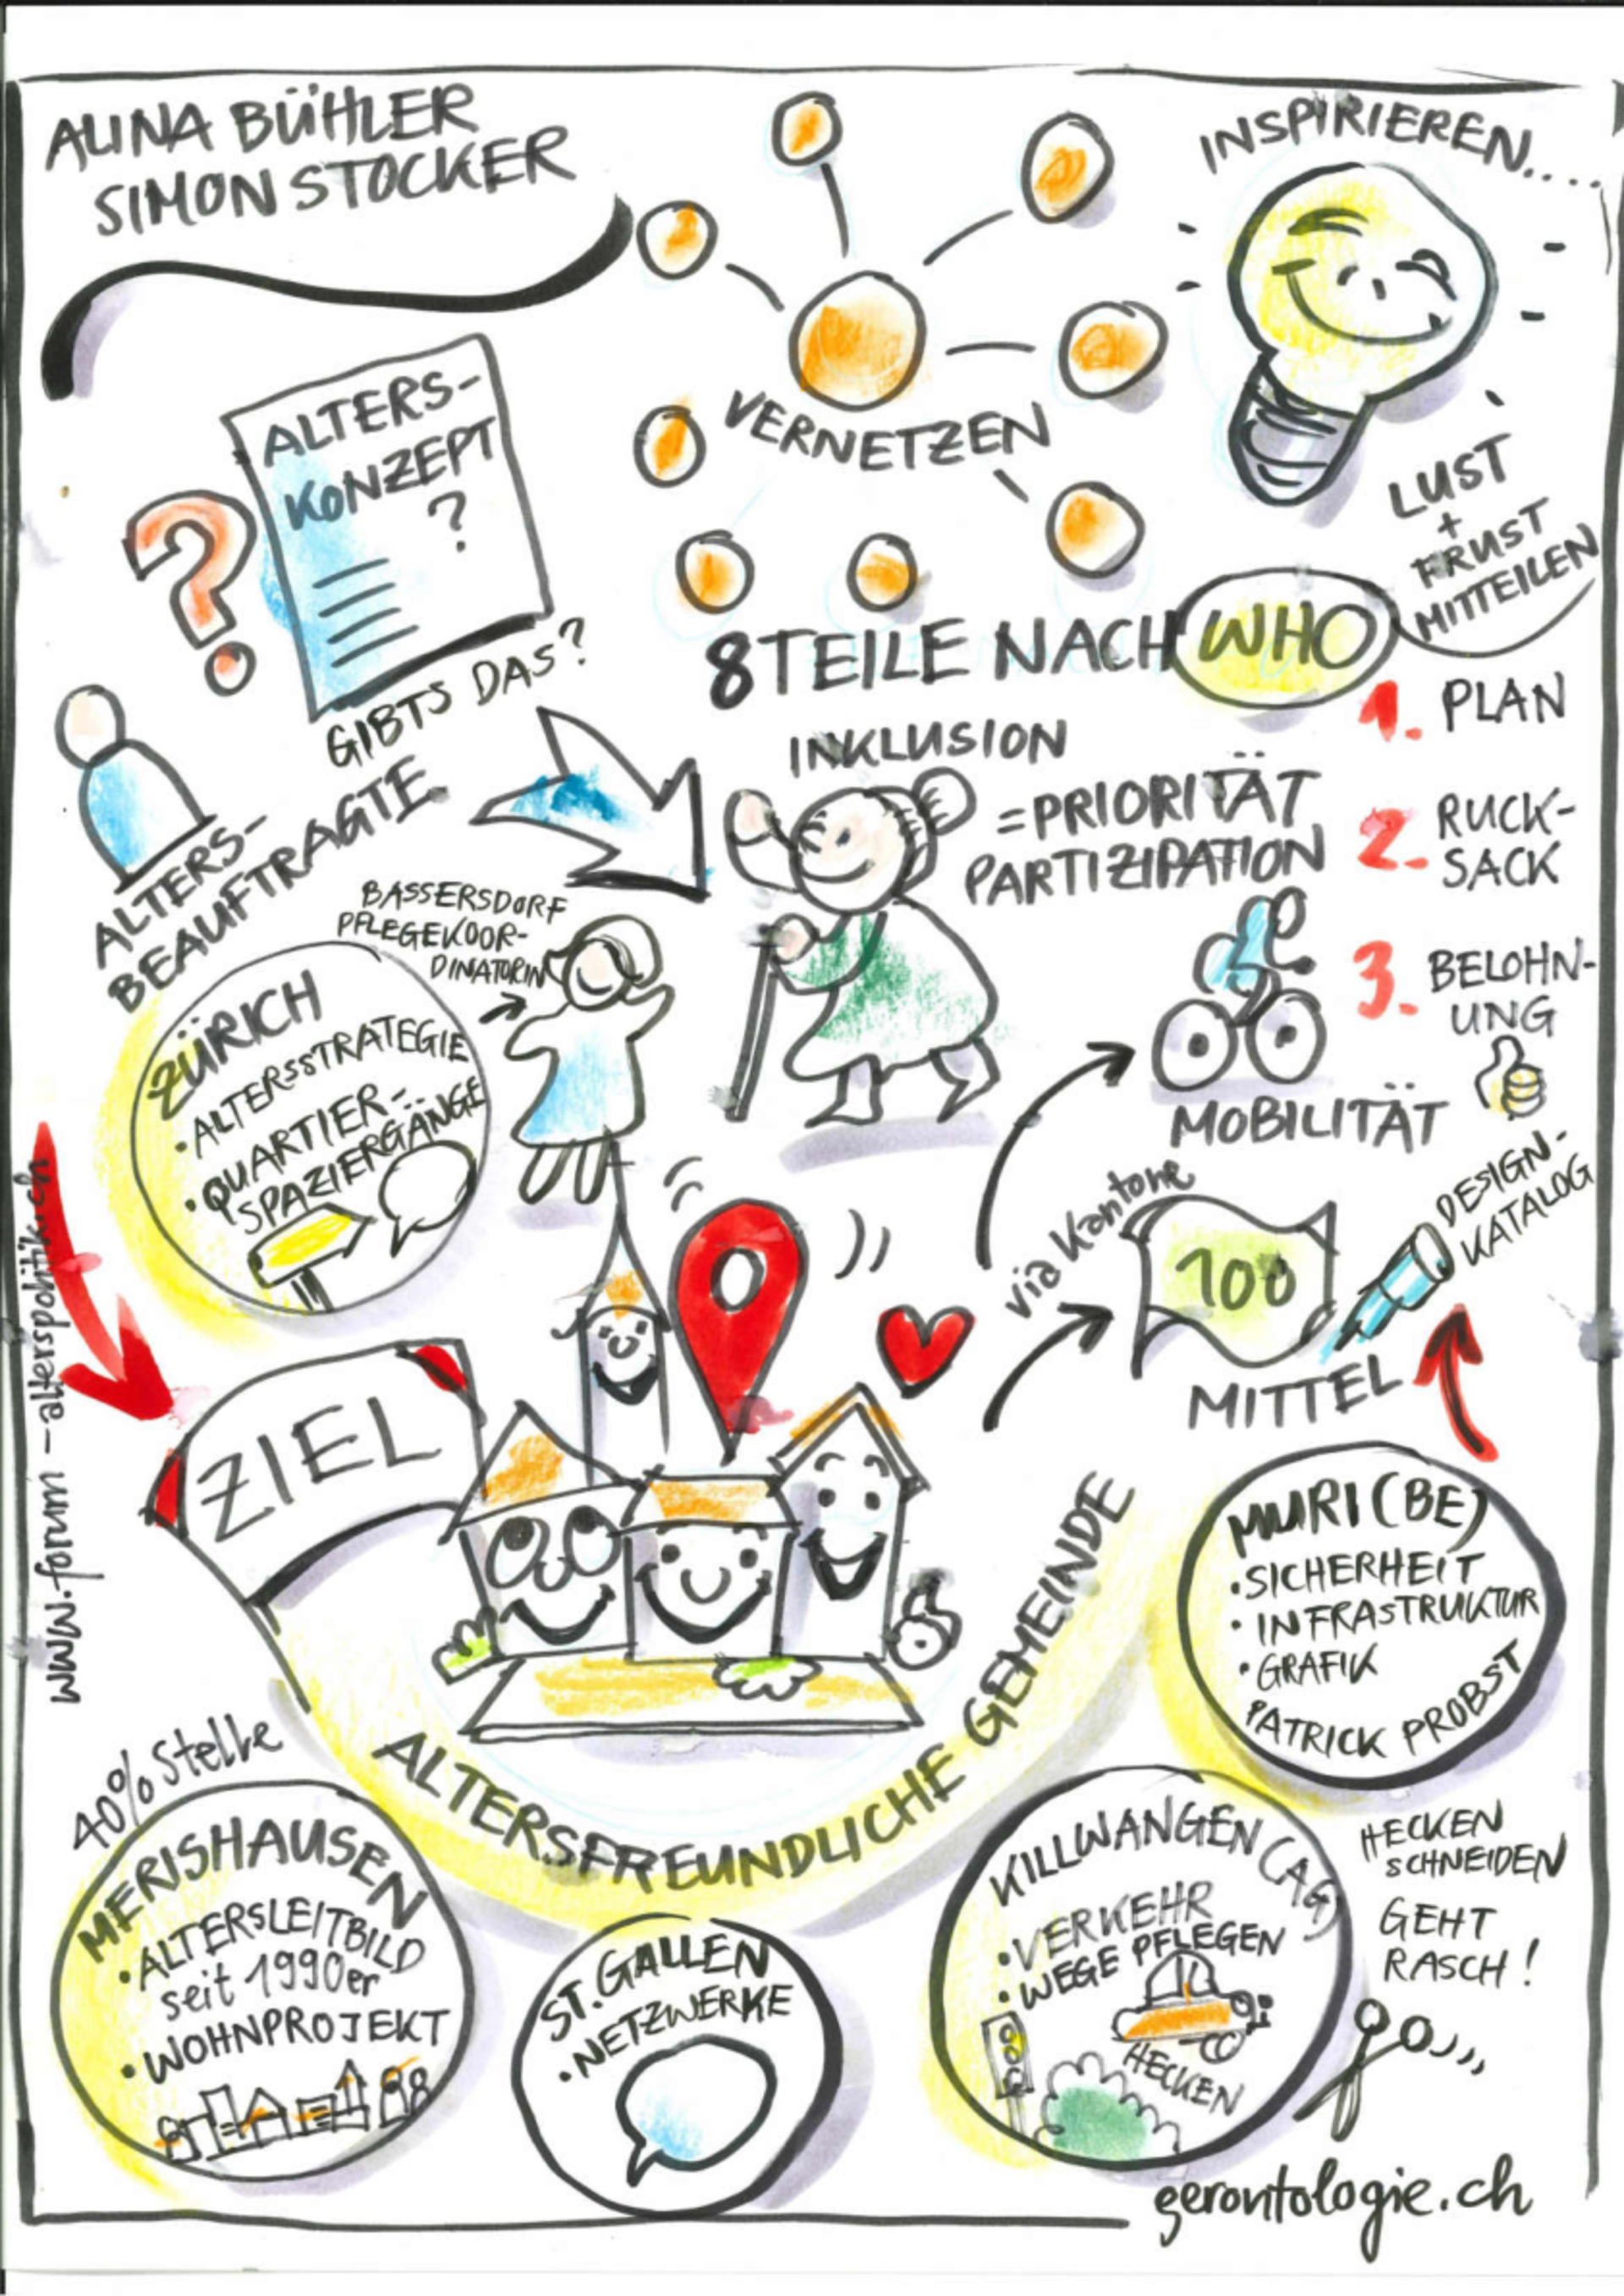 ALINA BÜHLER
SIMON STOCKER
INSPIRIEREN....
VERNETZEN
LUST
+
FRUST
MITTEILEN
ALTERS-
KONZEPT
?
?
GIBTS DAS?
ALTERS-
BEAUFTRAGTE
8 TEILE NACH WHO
INKLUSION
= PRIORITÄT
PARTIZIPATION
1. PLAN
2. RUCK-
SACK
3. BELOHN-
UNG
BASSERSDORF
PFLEGEKOOR-
DINATORIN
ZÜRICH
• ALTERSSTRATEGIE
• QUARTIER-
SPAZIERGÄNGE
MOBILITÄT
via Kantone
100
MITTEL
DESIGN-
KATALOG
www.forum-alterspolitik.ch
ZIEL
ALTERSFREUNDLICHE GEMEINDE
MURI (BE)
• SICHERHEIT
• INFRASTRUKTUR
• GRAFIK
PATRICK PROBST
40% Stelle
MERISHAUSEN
• ALTERSLEITBILD
seit 1990er
• WOHNPROJEKT
ST. GALLEN
• NETZWERKE
KILLWANGEN (AG)
• VERKEHR
• WEGE PFLEGEN
HECKEN
HECKEN
SCHNEIDEN
GEHT
RASCH!
gerontologie.ch